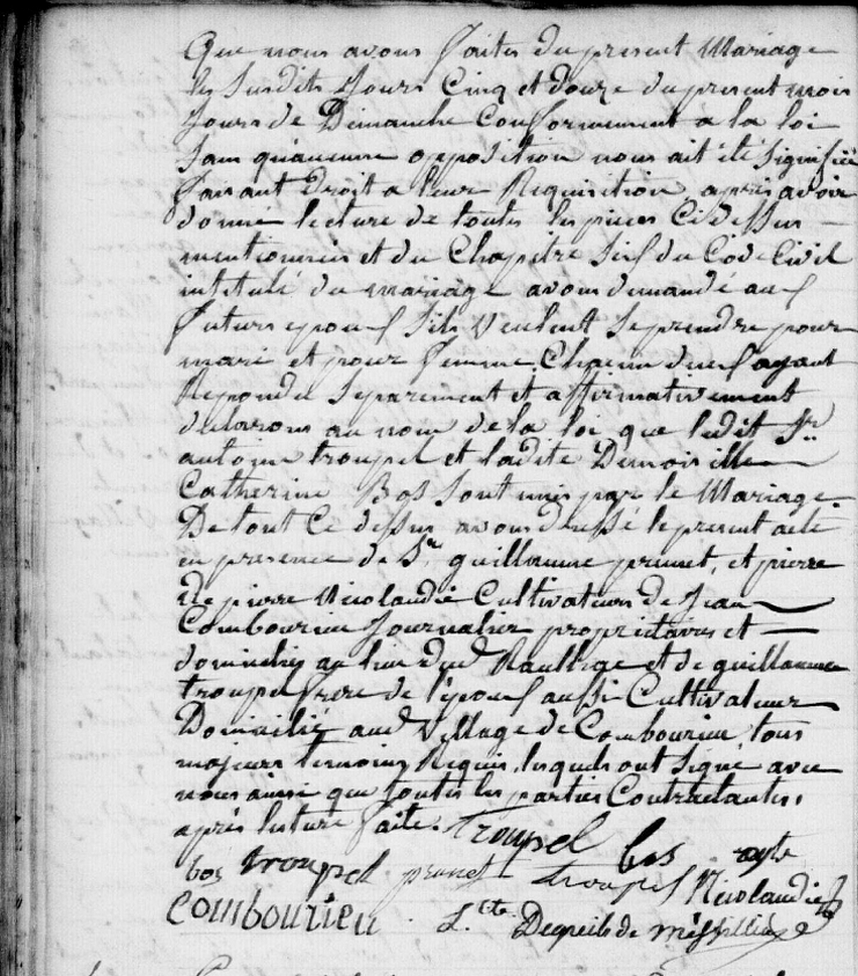 Que nous avons faites du present Mariage
les susdits Jours Cinq et douze du present mois
Jours de Dimanche Conformement a la loi
sans qu'aucune opposition nous ait été signifiée
faisant droit a leur Requisition après avoir
donné lecture de toutes les pieces Cidessus
mentionnées et du Chapitre six du Code Civil
intitulé du mariage avons demandé aux
futurs epoux s'ils veulent se prendre pour
mari et pour femme. Chacun deux ayant
Repondu separement et affirmativement
declarons au nom de la loi que ledit Sr
antoine troupel et ladite Demoiselle
Catherine Bos sont unis par le Mariage.
De tout Ce dessus avons dressé le present acte
en presence de Sr guillaume prunet, et pierre
de pierre Nicolaudie Cultivateurs de Jean
Combourieu Journalier proprietaires et
domicilies au lieu dud Raulhac et de guillaume
troupel frere de l'epoux aussi Cultivateur
Domicilié aud Village de Combourieu, tous
majeurs temoins Requis, lesquels ont signé avec
nous ainsi que toutes les parties Contractantes,
après lecture faite. Troupel bos
bos troupel prunet troupel Nicolaudie
Combourieu